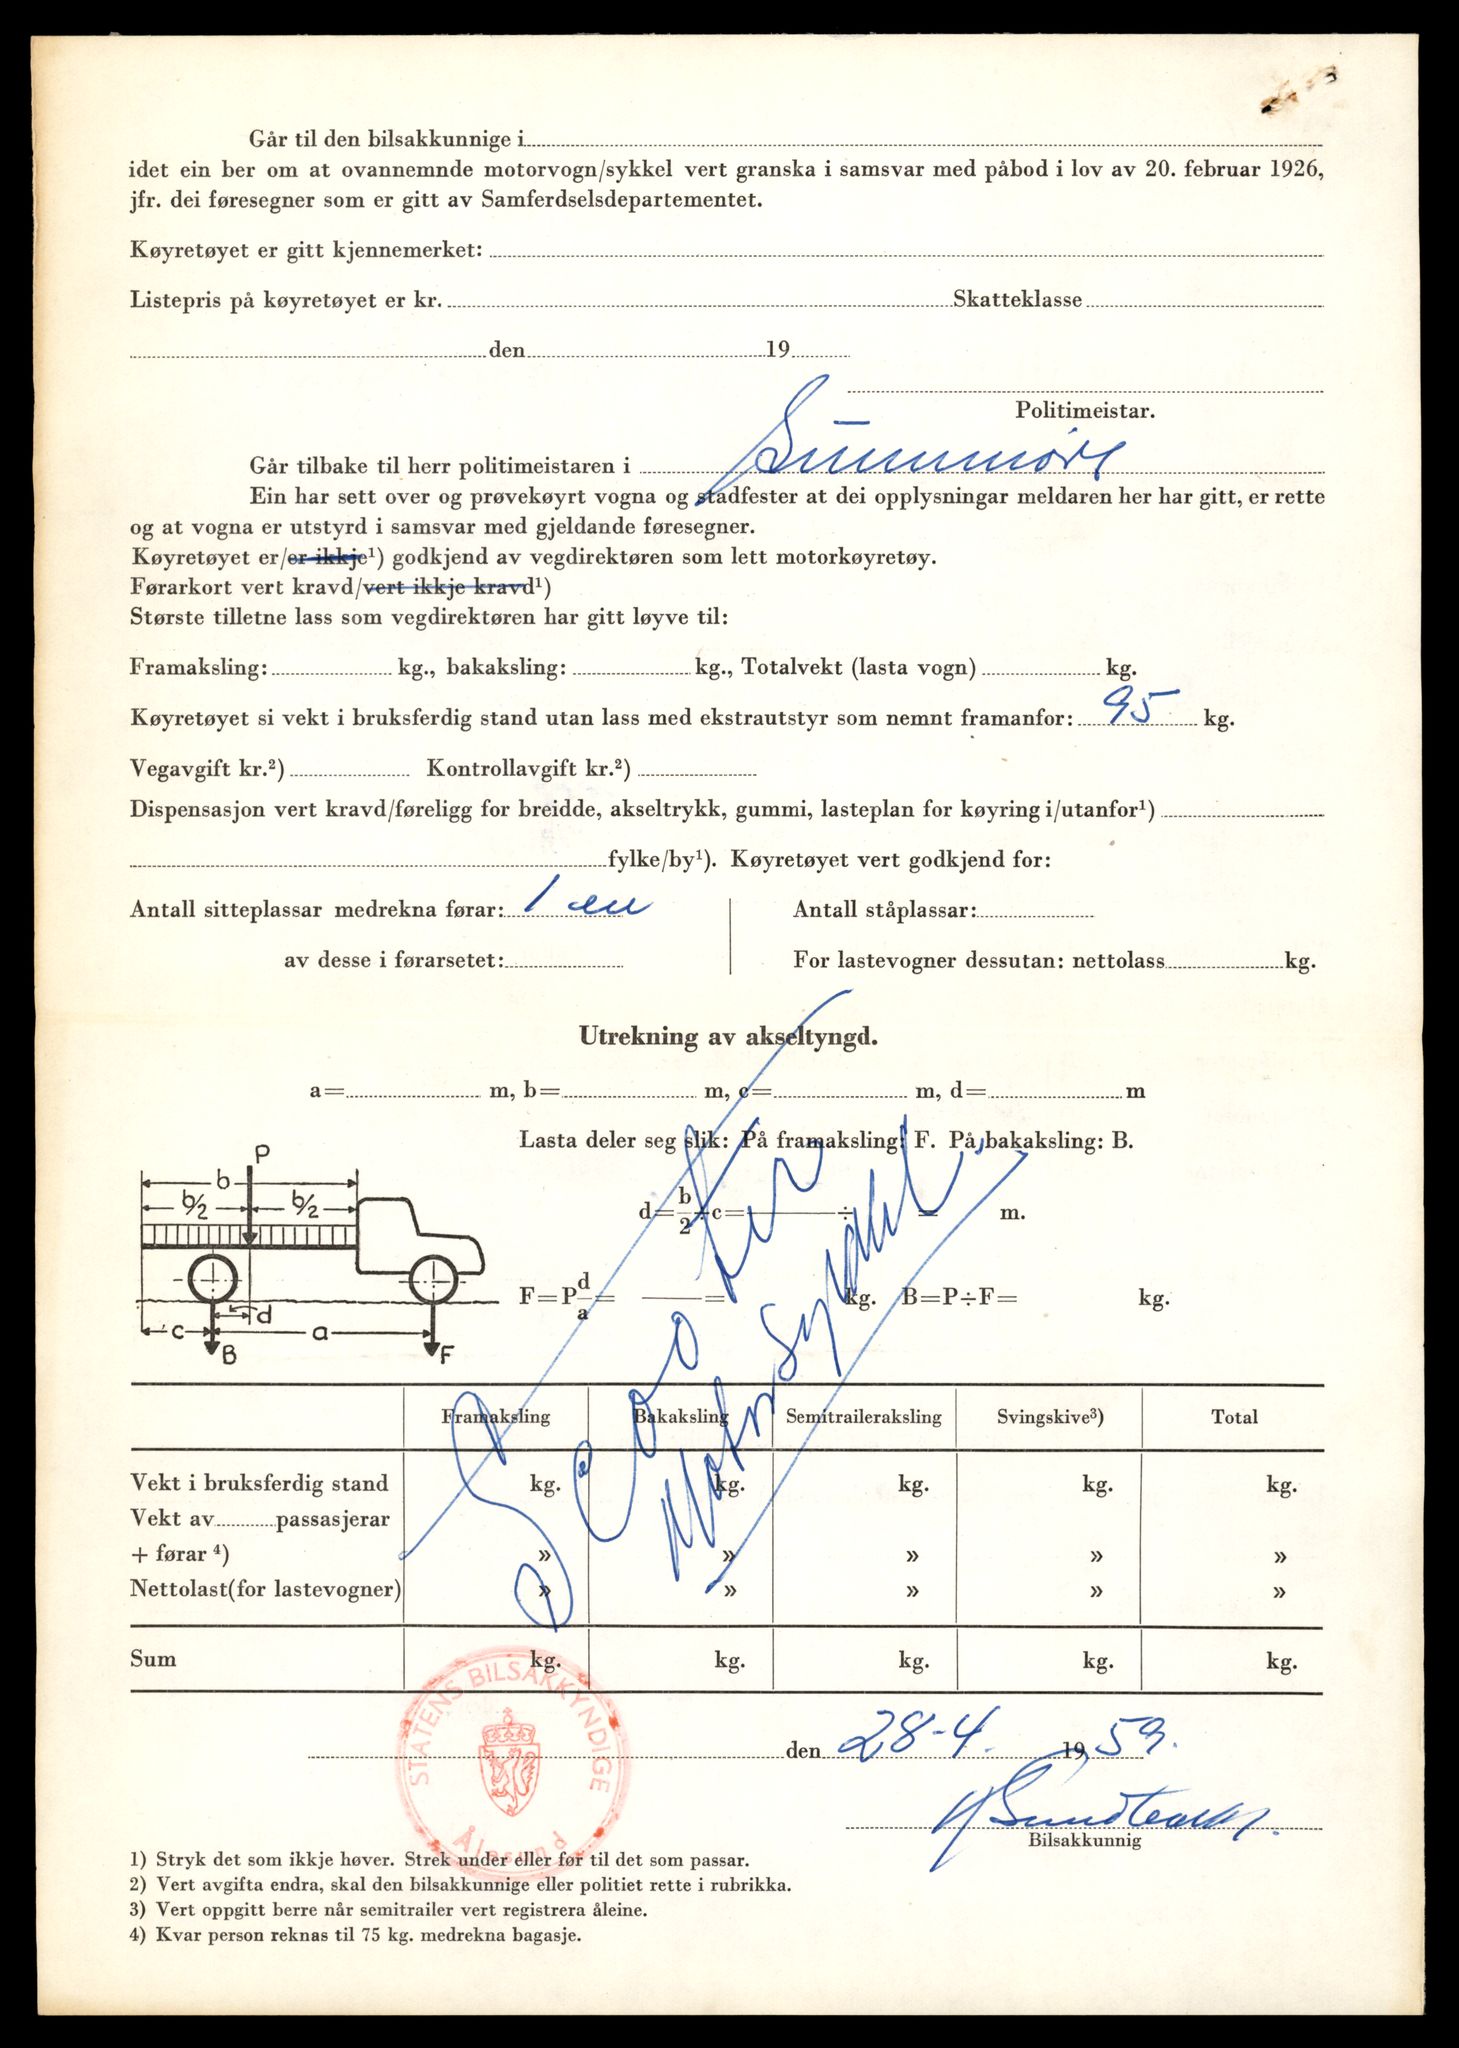 Går til den bilsakkunnige i
idet ein ber om at ovannemnde motorvogn/sykkel vert granska i samsvar med påbod i lov av 20. februar 1926,
jfr. dei føresegner som er gitt av Samferdselsdepartementet.
Køyretøyet er gitt kjennemerket:
Listepris på køyretøyet er kr. Skatteklasse
den 19
Politimeistar.
Går tilbake til herr politimeistaren i Sunnmøre
Ein har sett over og prøvekøyrt vogna og stadfester at dei opplysningar meldaren her har gitt, er rette
og at vogna er utstyrd i samsvar med gjeldande føresegner.
Køyretøyet er/er ikkje¹) godkjend av vegdirektøren som lett motorkøyretøy.
Førarkort vert kravd/vert ikkje kravd¹)
Største tilletne lass som vegdirektøren har gitt løyve til:
Framaksling: kg., bakaksling: kg., Totalvekt (lasta vogn) kg.
Køyretøyet si vekt i bruksferdig stand utan lass med ekstrautstyr som nemnt framanfor: 95 kg.
Vegavgift kr.²) Kontrollavgift kr.²)
Dispensasjon vert kravd/føreligg for breidde, akseltrykk, gummi, lasteplan for køyring i/utanfor¹)
fylke/by¹). Køyretøyet vert godkjend for:
Antall sitteplassar medrekna førar: 1 en Antall ståplassar:
av desse i førarsetet: For lastevogner dessutan: nettolass kg.
Utrekning av akseltyngd.
a= m, b= m, c= m, d= m
Lasta deler seg slik: På framaksling: F. På bakaksling: B.
P
b
b/2 b/2
d=b/2÷c= ÷ = m.
F=P d/a= = kg. B=P÷F= kg.
d
c a
B F
Scooter
Motorsykkel
Framaksling Bakaksling Semitraileraksling Svingskive³) Total
Vekt i bruksferdig stand kg. kg. kg. kg. kg.
Vekt av passasjerar
+ førar ⁴) » » » » »
Nettolast(for lastevogner) » » » » »
Sum kg. kg. kg. kg. kg.
STATENS BILSAKKYNDIGE
Ålesund
den 28-4. 1959.
Bilsakkunnig
1) Stryk det som ikkje høver. Strek under eller før til det som passar.
2) Vert avgifta endra, skal den bilsakkunnige eller politiet rette i rubrikka.
3) Vert oppgitt berre når semitrailer vert registrera åleine.
4) Kvar person reknas til 75 kg. medrekna bagasje.